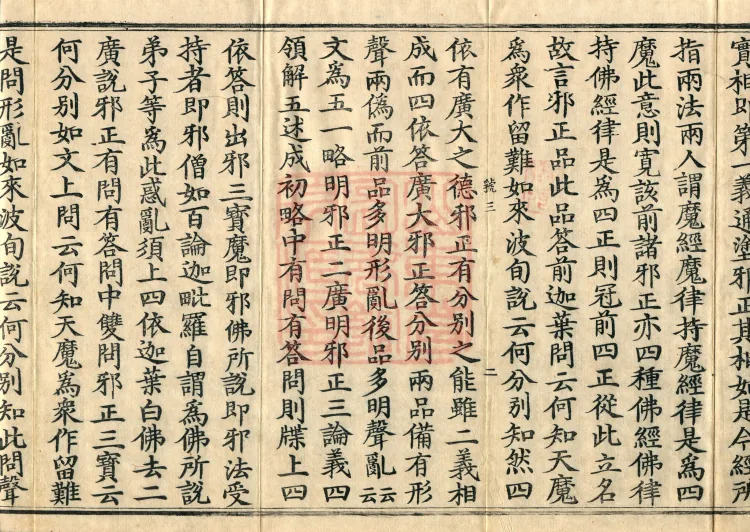 實相即第一義通塗邪正其相如是今經所
指兩法兩人謂魔經魔律持魔經律是為四
魔此意則寬該前諸邪正亦四種佛經佛律
持佛經律是為四正則冠前四正從此立名
故言邪正品此品答前迦葉問云何知天魔
為衆作留難如來波旬說云何分别知然四
號三
二
依有廣大之德邪正有分別之能雖二義相
成而四依答廣大邪正答分別兩品備有形
聲兩偽而前品多明形亂後品多明聲亂云云
文為五一略明邪正二廣明邪正三論義四
領解五述成初略中有問有答問則牒上四
依答則出邪三寶魔即邪佛所說即邪法受
持者即邪僧如百論迦毗羅自謂為佛所說
弟子等為此惑亂須上四依迦葉白佛去二
廣說邪正有問有答問中雙問邪正三寶云
何分別如文上問云何知天魔為衆作留難
是問形亂如來波旬說云何分別知此問聲